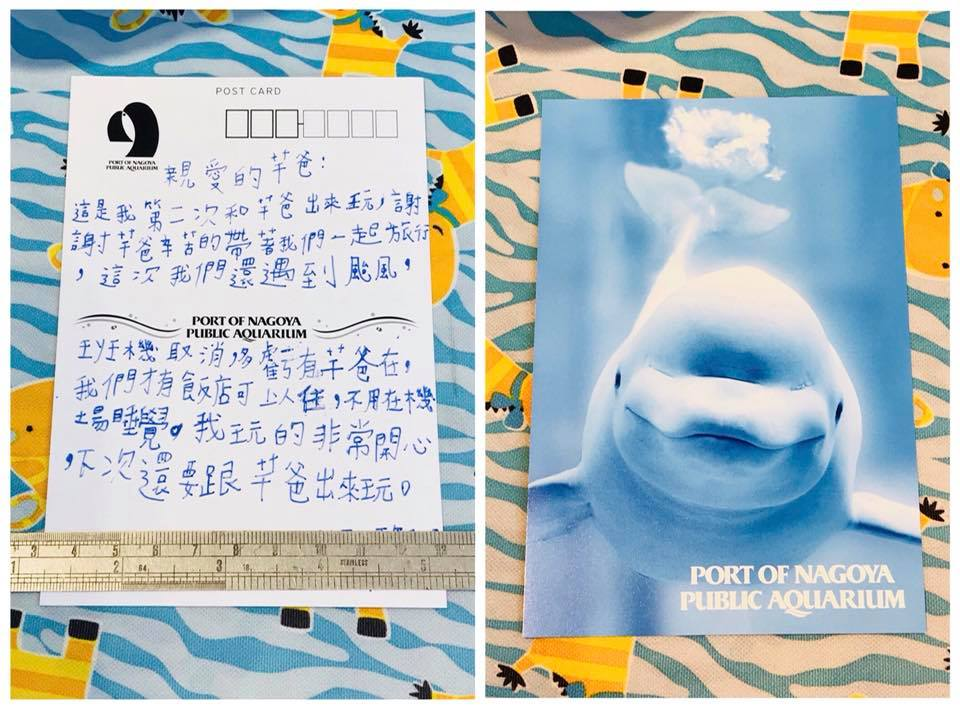 POST CARD
PORT OF NAGOYA
PUBLIC AQUARIUM
親愛的芋爸:
這是我第二次和芋爸出來玩,謝
謝芋爸辛苦的帶著我們一起旅行
,這次我們還遇到颱風,
PORT OF NAGOYA
PUBLIC AQUARIUM
機取消多虧有芋爸在,
我們才有飯店可以住,不用在機
場睡覺。我玩的非常開心
,下次還要跟芋爸出來玩。
3 4 5 6 7 8 9 10 11 12 13
1 2 64 3 STAINLESS 5
PORT OF NAGOYA
PUBLIC AQUARIUM